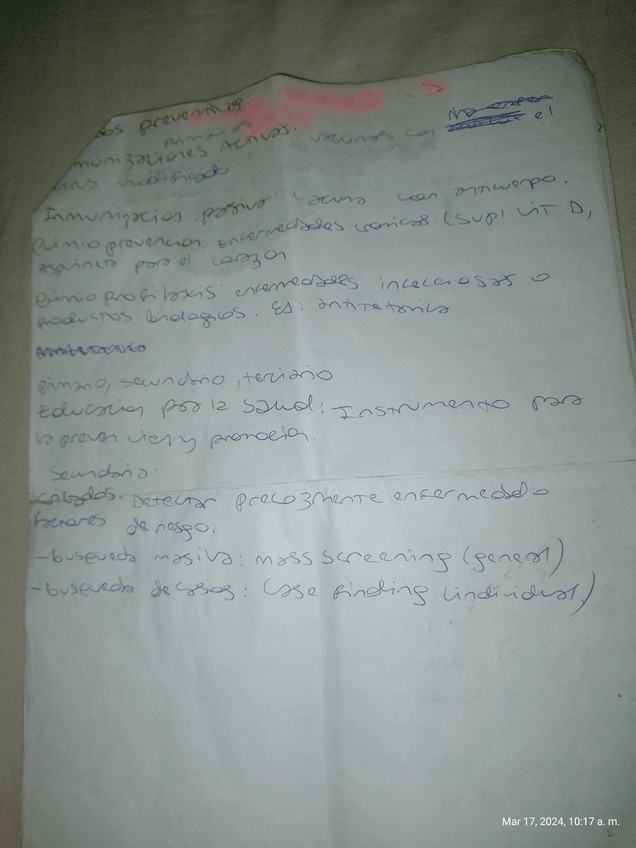 dos preventivas:
primarios
munizaciones Activas. vacunas con el
virus modificado
Inmunizacion pasiva: vacuna con anticuerpo.
Quimioprevencion: Enfermedades cronicas (Supl Vit D,
Aspirineta para el corazon
Quimioprofilaxis: enfermedades infecciosas o
productos biologicos. EJ: antitetanica
primario, secundario, terciario
Educacion por la salud: Instrumento para
la preven cion y promocion.
Secundario:
cribados. Detectar precozmente enfermedad o
factores de riesgo.
-busqueda masiva: mass screening (general)
-busqueda de casos: Case finding (individual)
Mar 17, 2024, 10:17 a. m.